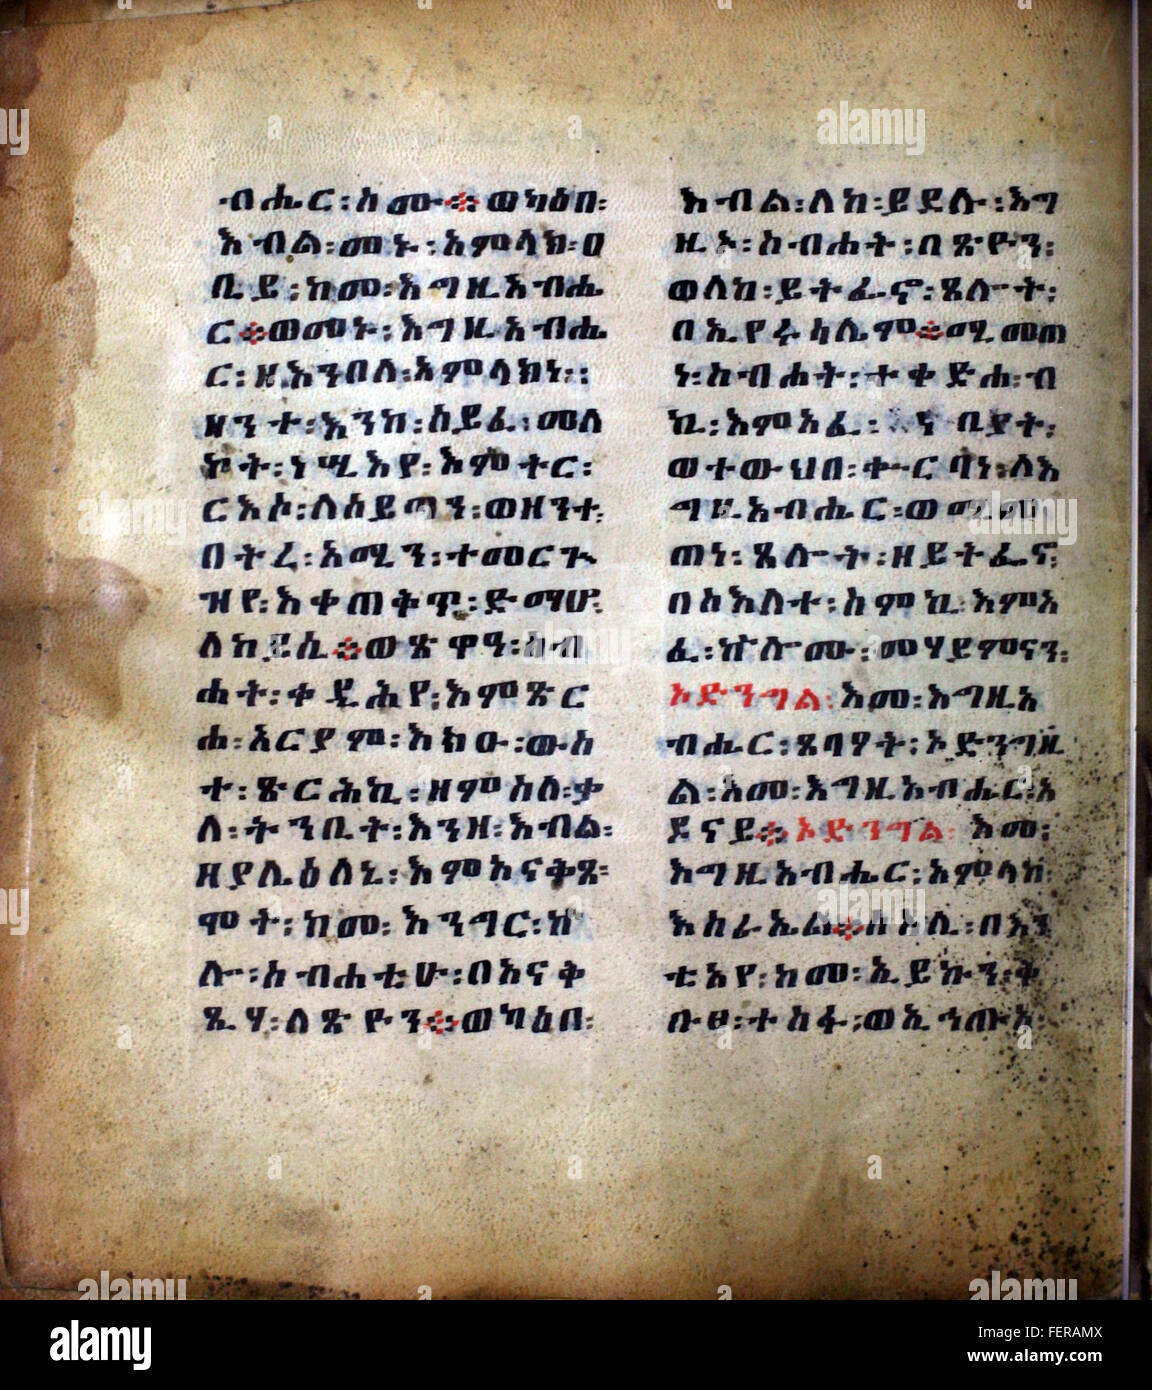 ብሔር፡ ስሙ። ወካዕበ፡
እብል፡ መኑ፡ አምላክ፡ ዐ
ቢይ፡ ከመ፡ እግዚአብሔ
ር። ወመኑ፡ እግዚአብሔ
ር፡ ዘእንበለ፡ አምላክነ፡
ዘንተ፡ እንከ፡ ሰይፈ፡ መለ
ኮት፡ ነሢእየ፡ እምትር፡
ርእሶ፡ ለሰይጣን፡ ወዘንተ፡
በትረ፡ አሚን፡ ተመርጕ
ዝየ፡ እቀጠቅጥ፡ ድማሆ፡
ለከይሲ። ወጽዋዓ፡ ስብ
ሐት፡ ቀዲሕየ፡ እምጽር
ሐ፡ አርያም፡ እክዑ፡ ውስ
ተ፡ ጽርሕኪ፡ ዘምስለ፡ ቃ
ለ፡ ትንቢት፡ እንዘ፡ እብል፡
ዘያሌዕለኒ፡ እምአናቅጸ፡
ሞት፡ ከመ፡ እንግር፡ ኵ
ሎ፡ ስብሐቲሁ፡ በአናቅ
ጺሃ፡ ለጽዮን። ወካዕበ፡
እብል፡ ለከ፡ ይደሉ፡ እግ
ዚኦ፡ ስብሐት፡ በጽዮን፡
ወለከ፡ ይትፌኖ፡ ጸሎት፡
በኢየሩሳሌም። ሚመጠ
ነ፡ ስብሐት፡ ተቀድሐ፡ ብ
ኪ፡ እምአፈ፡ ነቢያት፡
ወተውህበ፡ ቍርባነ፡ ለእ
ግዚአብሔር፡ ወሚመ
ጠነ፡ ጸሎት፡ ዘይትፌኖ፡
በስእለተ፡ ስምኪ፡ እምአ
ፈ፡ ኵሎሙ፡ መሃይምናን፡
ኦድንግል፡ እመ፡ እግዚአ
ብሔር፡ ጸባዖት፡ ኦድንግ
ል፡ እመ፡ እግዚአብሔር፡ አ
ዶናይ። ኦድንግል፡ እመ፡
እግዚአብሔር፡ አምላከ፡
እስራኤል። ሰአሊ፡ በእን
ቲአየ፡ ከመ፡ ኢይኩን፡ ቅ
ቡፀ፡ ተስፋ፡ ወኢኅጡአ፡